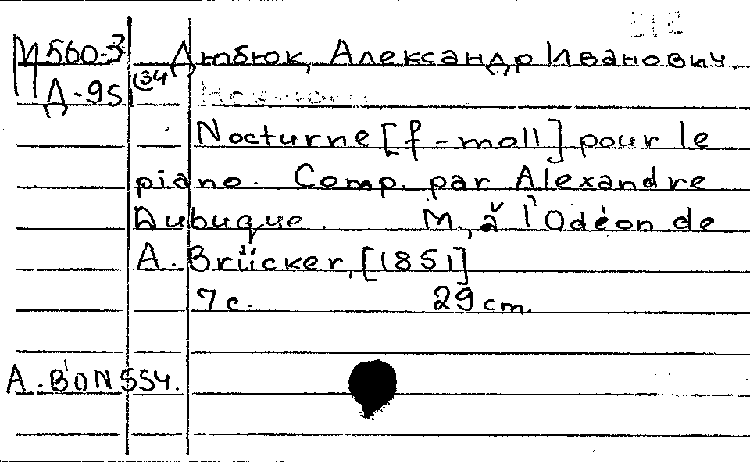 М560-3 Дюбюк, Александр Иванович.
Д-95 (34
Nocturne [f-moll] pour le
piano. Comp. par Alexandre
Dubuque. M., à l'Odéon de
A. Brücker, [1851]
7 с. 29 cm.
A.BÜN554.